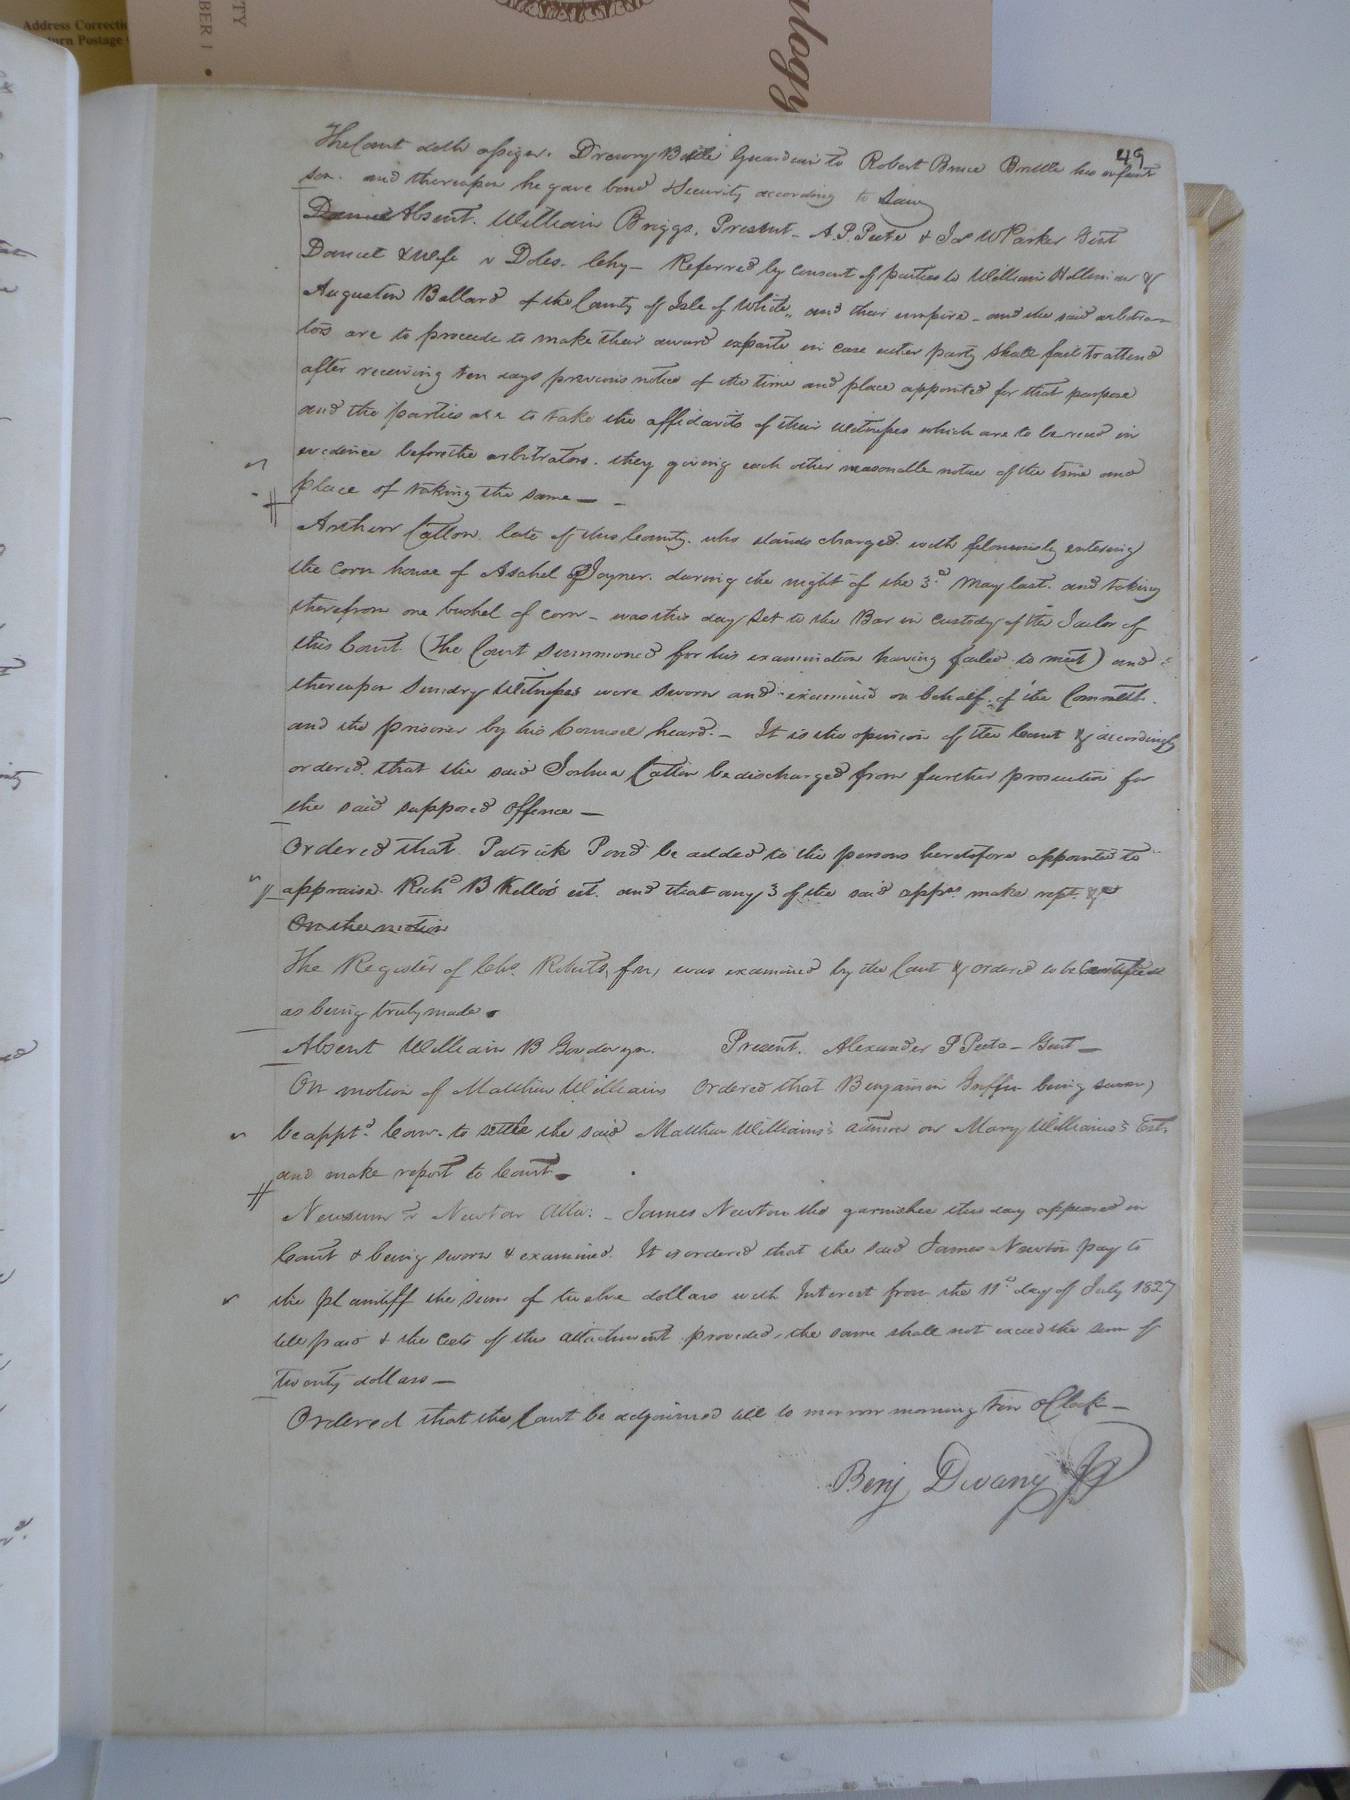 Address Correcti
Return Postage
TY
BER 1 •
ulogy
49
The Court doth assign. Drewry Bittle Guardian to Robert Bruce Brittle his infant
son. and thereupon he gave bond & Security according to Law
Daniel Absent. William Briggs. Present - A. P. Peete & Jas W Parker Gent
Daniel & Wife v Doles. Chy - Referred by consent of parties to William Holleman &
Augustin Ballard of the County of Isle of White, and their umpire - and the said arbitra-
tors are to proceede to make their award exparte in case either party shall fail to attend
after receiving ten days previous notice of the time and place appointed for that purpose
and the parties are to take the affidavits of their witnesses which are to be read in
evidence before the arbitrators. they giving each other reasonable notice of the time and
place of taking the same -
Arthur Catton late of this County. who stands charged with feloniously entering
the corn house of Aschel Joyner. during the night of the 3d May last. and taking
therefrom one bushel of corn - was this day set to the Bar in custody of the Jailor of
this Court. (The Court summoned for his examination having failed to meet) and
thereupon sundry witnesses were sworn and examined on behalf of the Commlth.
and the prisoner by his Counsel heard. - It is the opinion of the Court & accordingly
ordered. that the said Joshua Catton be discharged from further prosecution for
the said supposed offence -
Ordered that Patrick Pond be added to the persons heretofore appointed to
appraise. Richd B Kello's est. and that any 3 of the said apprs make rept. &c
On the motion
The Register of Chs. Roberts, fn, was examined by the Court & ordered to be Certified
as being truly made.
Absent William B Goodwyn. Present. Alexander P Peete - Gent -
On motion of Matthew Williams Ordered that Benjamin Griffin being sworn,
be apptd. Comr. to settle the said Matthew Williams's admon on Mary Williams's Est.
and make report to Court -
Newsum v Newton Atta: - James Newton the garnishee this day appeared in
Court & being sworn & examined. It is ordered that the said James Newton pay to
the plaintiff the sum of twelve dollars with Interest from the 11d day of July 1827
till paid & the Costs of the attachment provided, the same shall not exceed the sum of
twenty dollars -
Ordered that the Court be adjourned till to morrow morning ten oClock -
Benj Devany